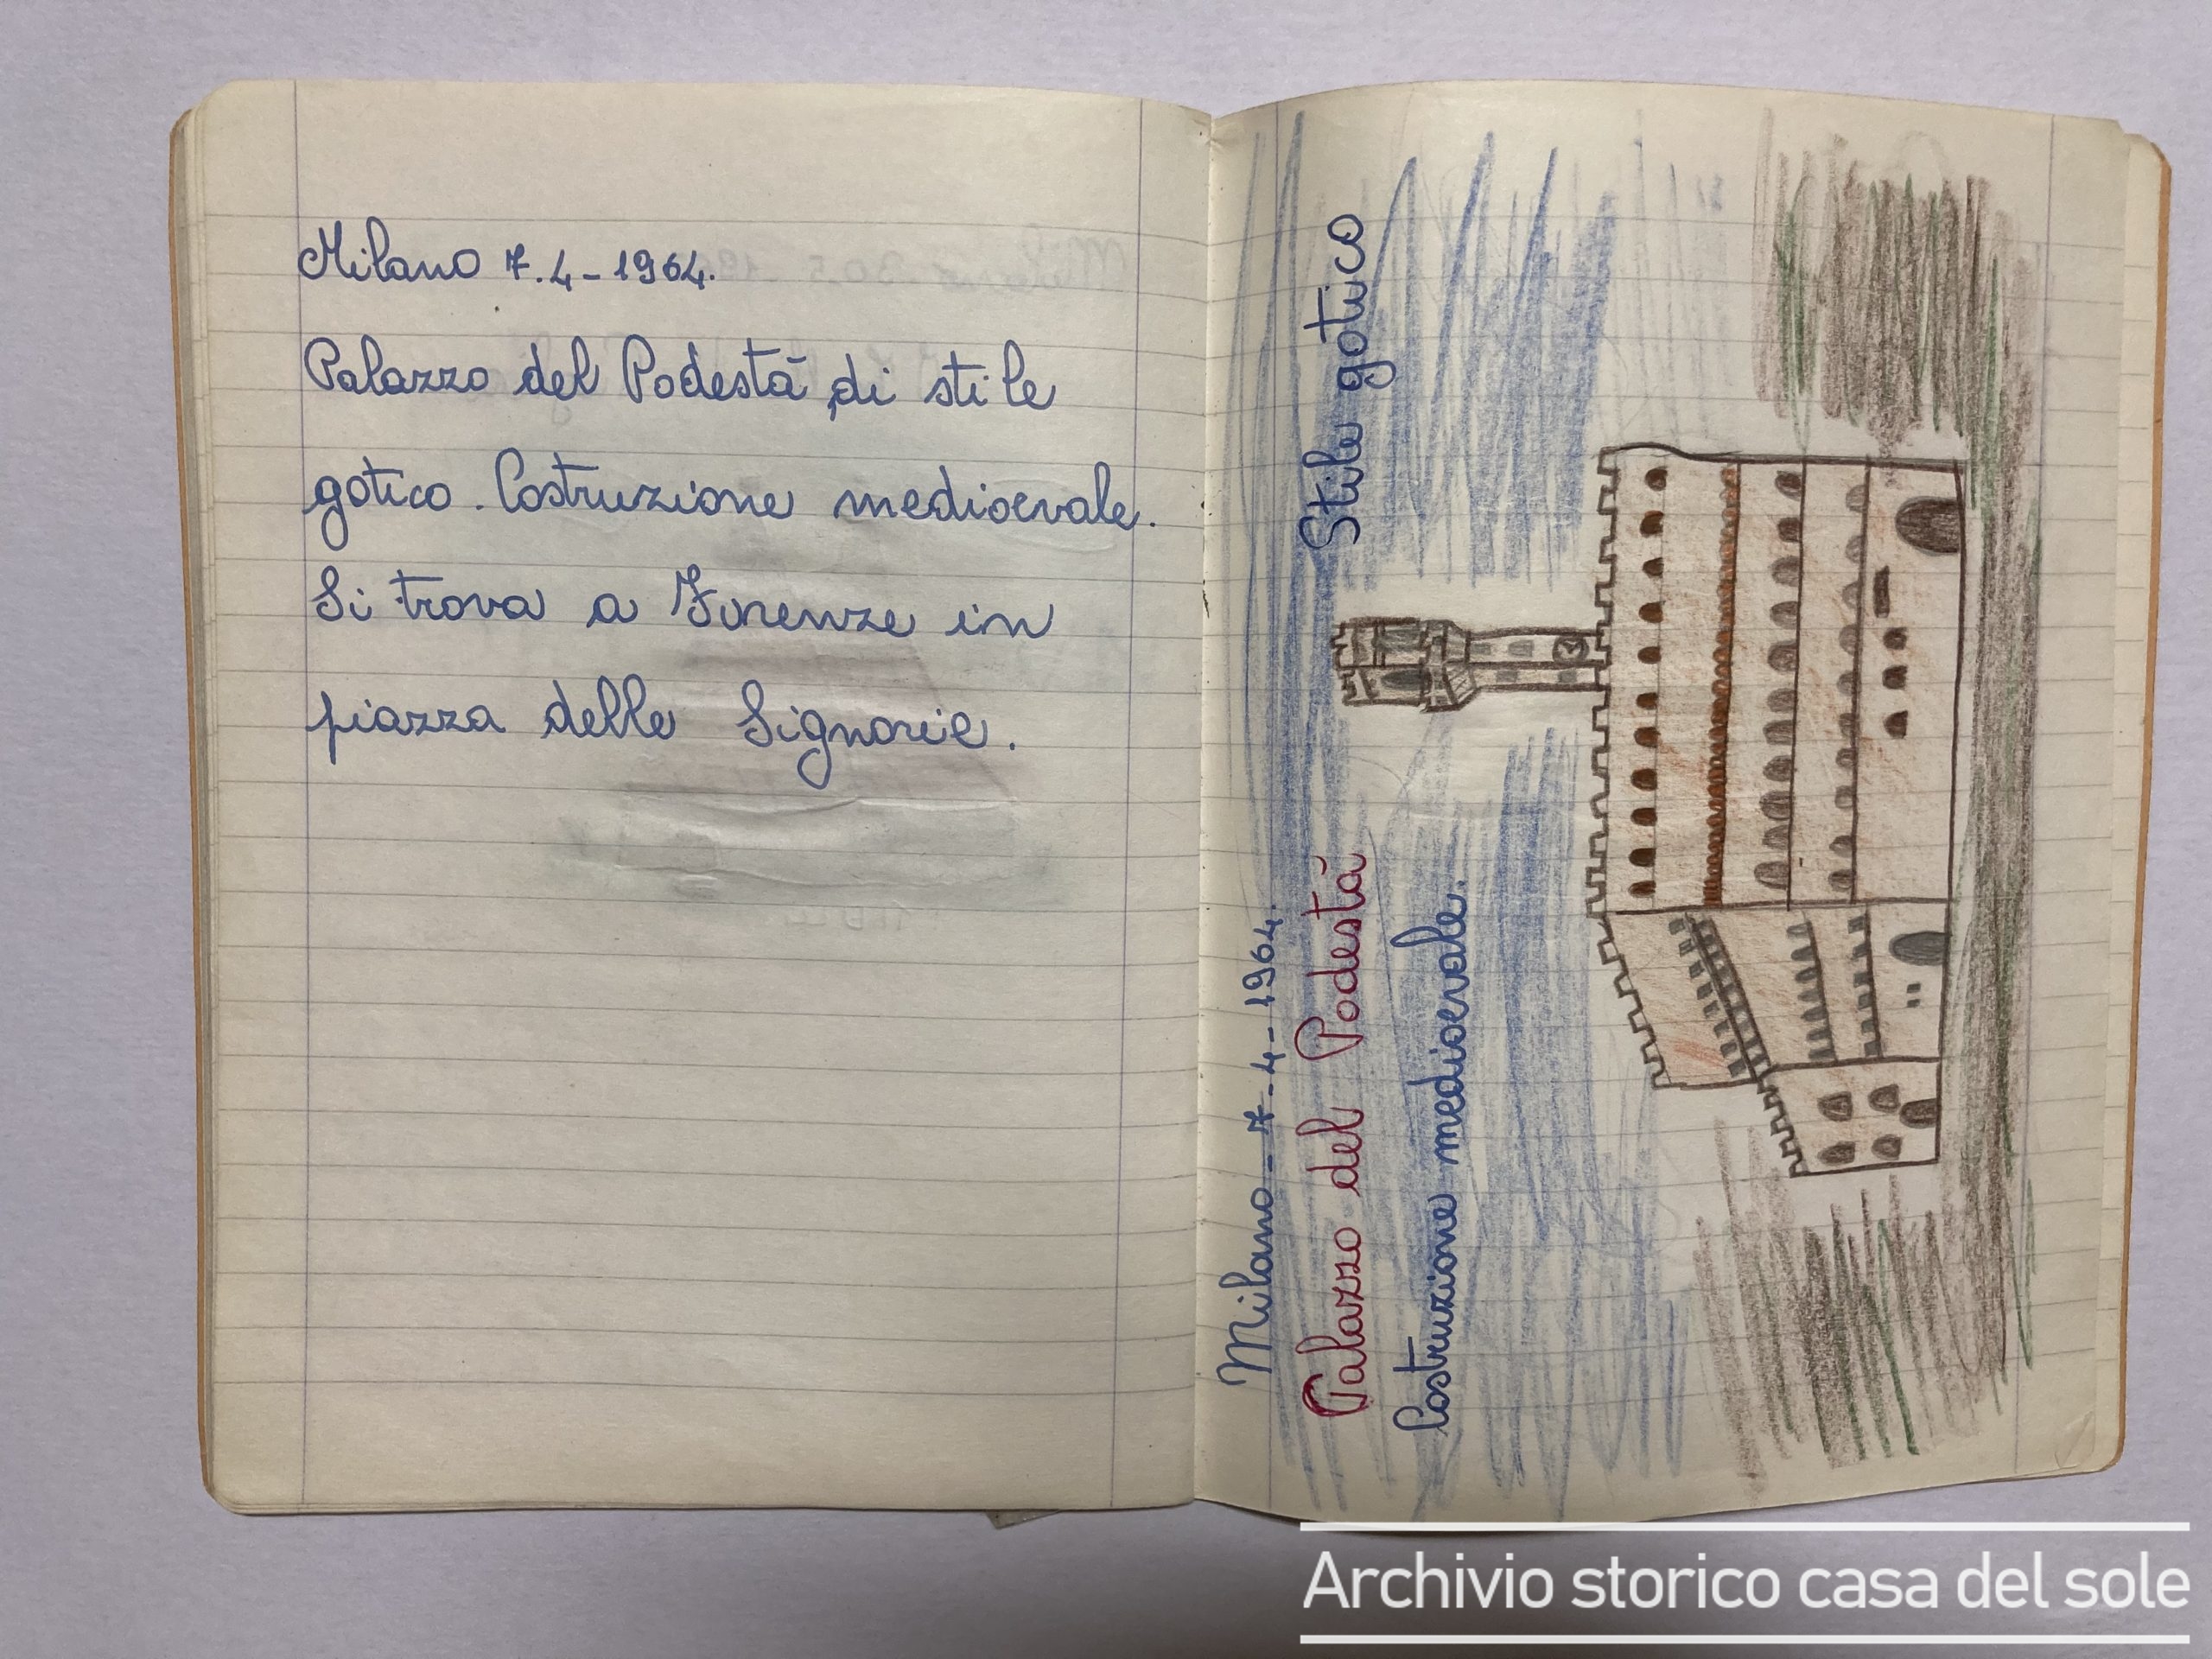 Milano 7.4-1964.
Palazzo del Podestà di stile
gotico. Costruzione medioevale.
Si trova a Firenze in
piazza delle Signorie.
Milano-7-4-1964.
Palazzo del Podestà Stile gotico
Costruzione medioevale.
Archivio storico casa del sole